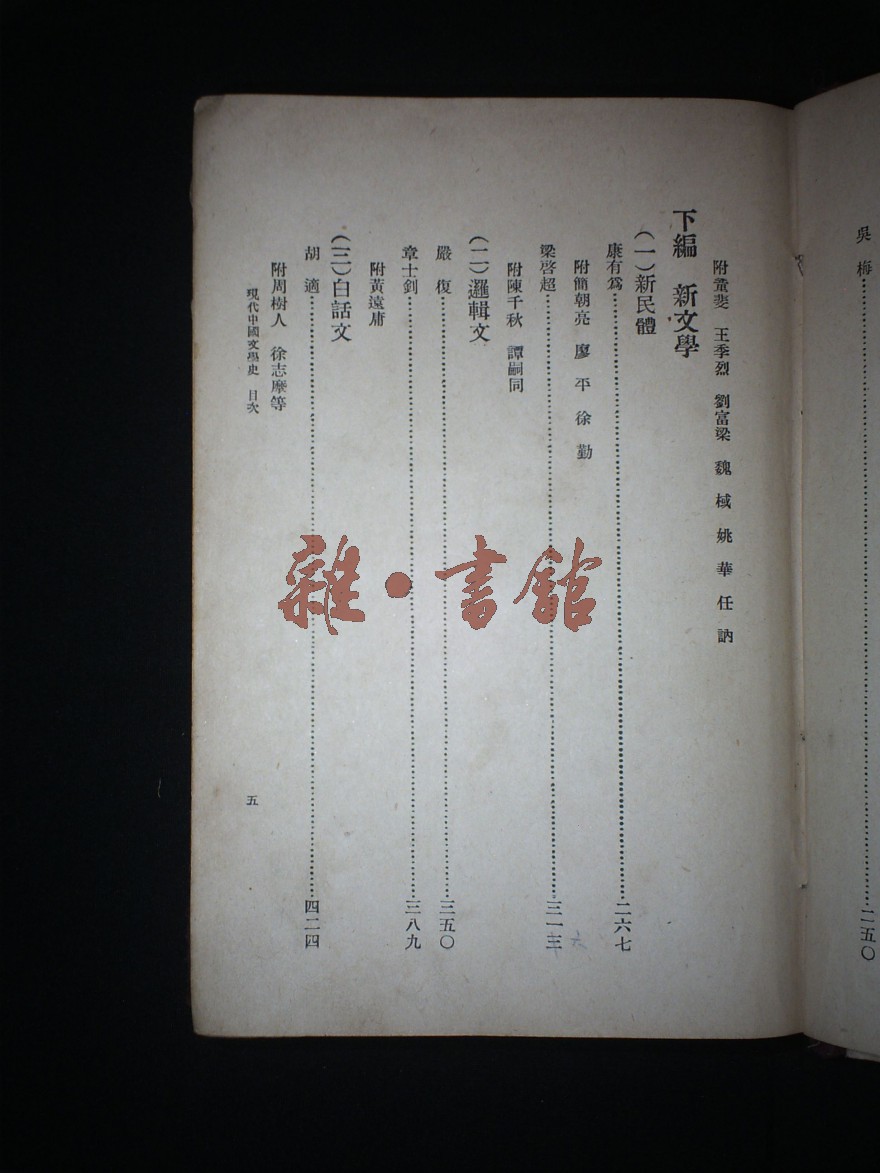 吳梅……二五〇
附童斐 王季烈 劉富梁 魏棫 姚華 任訥
下編 新文學
(一)新民體
康有爲……二六七
附簡朝亮 廖平 徐勤
梁啓超……三一三
附陳千秋 譚嗣同
(二)邏輯文
嚴復……三五〇
章士釗……三八九
附黃遠庸
(三)白話文
胡適……四二四
附周樹人 徐志摩等
現代中國文學史 目次
五
雜·書館